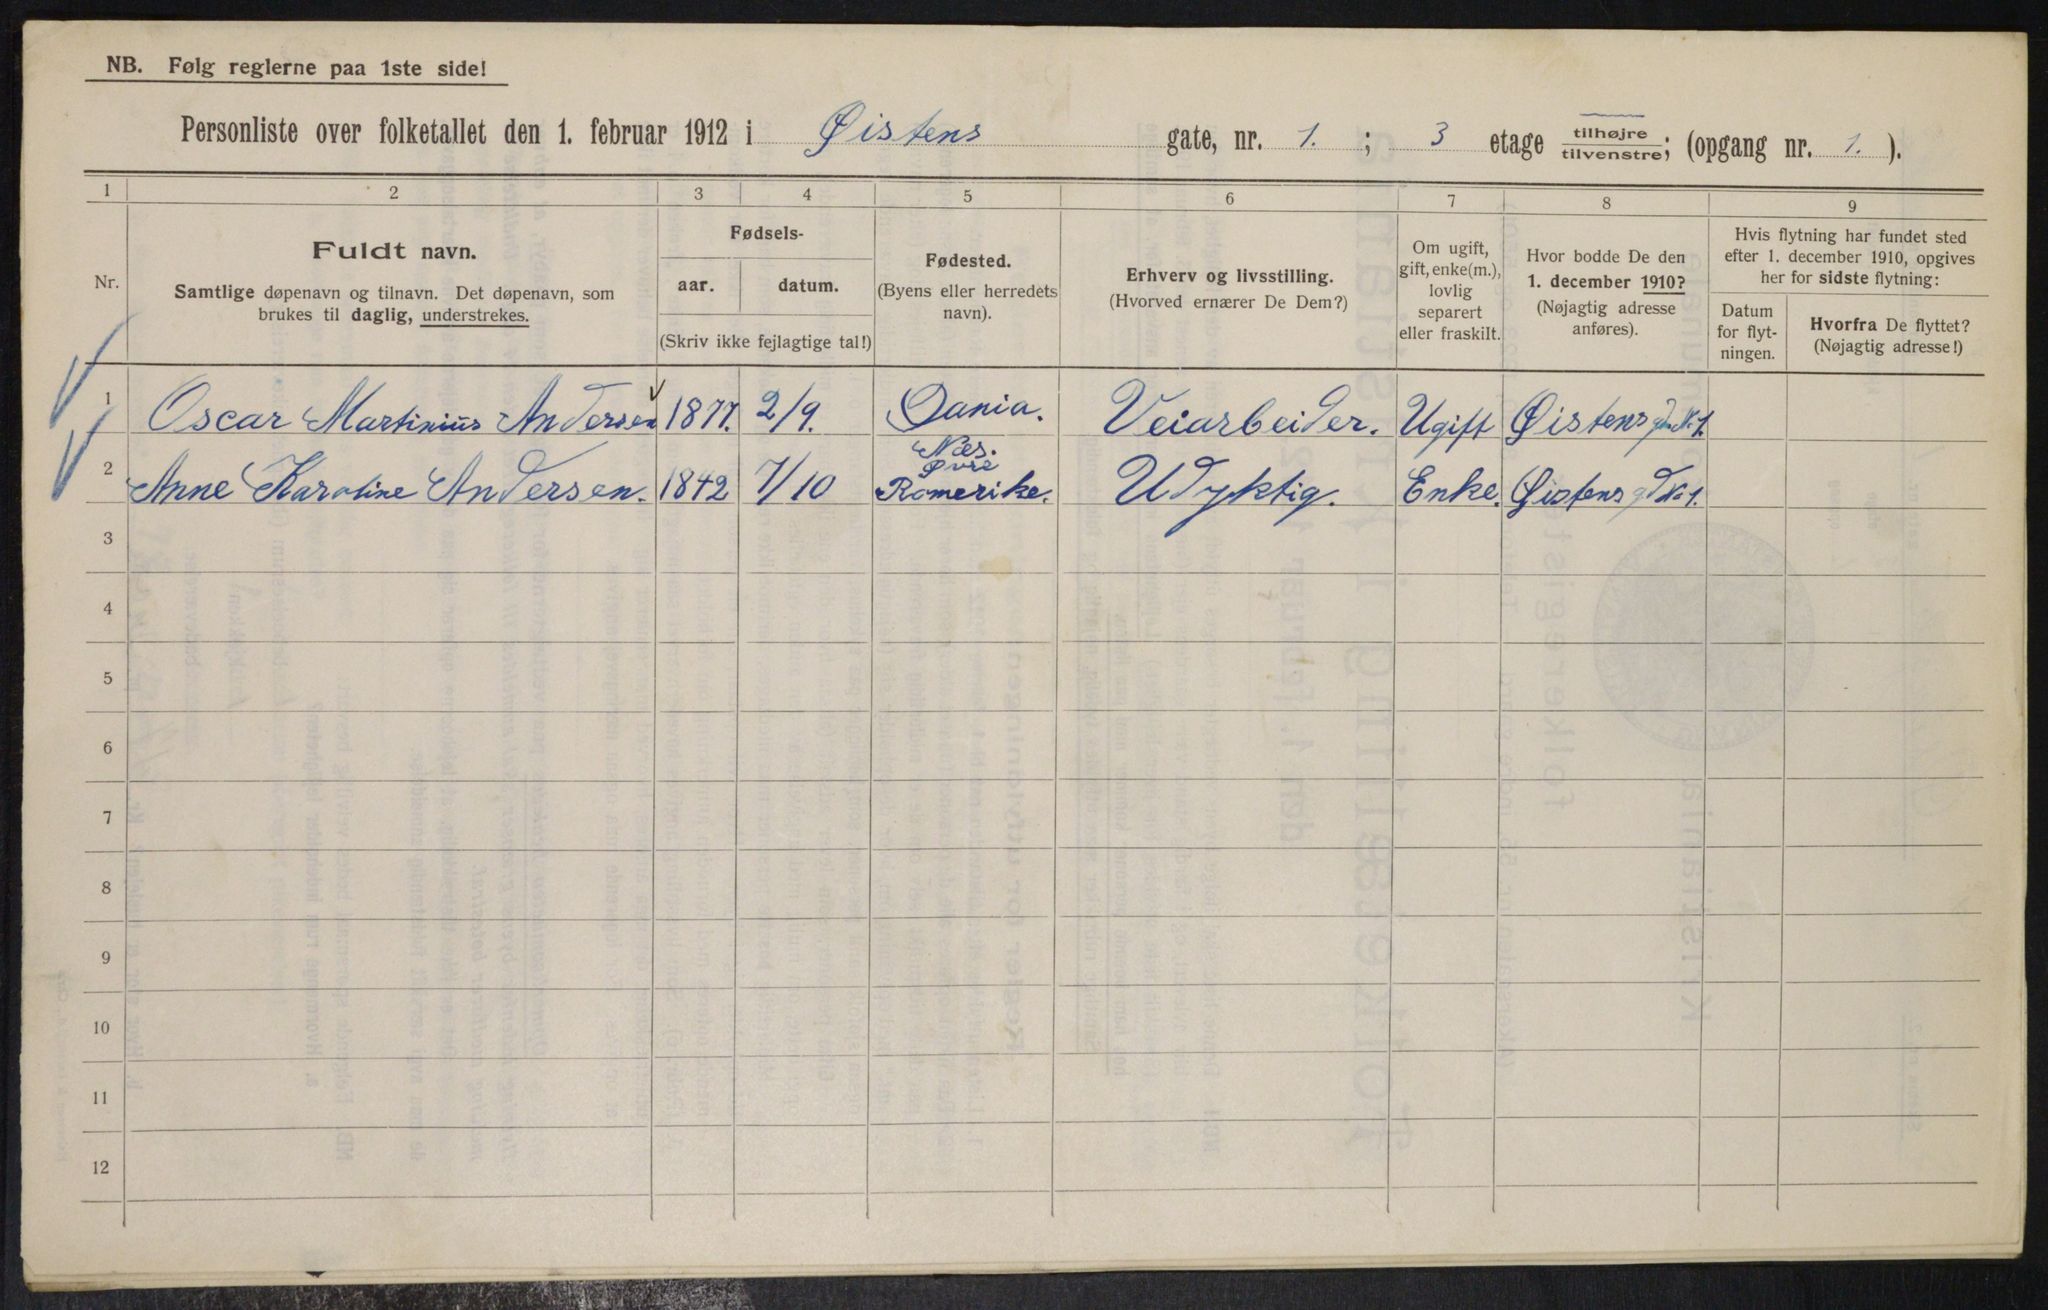 NB. Følg reglerne paa 1ste side!
Personliste over folketallet den 1. februar 1912 i Øistens gate, nr. 1. ; 3 etage tilhøjre/tilvenstre; (opgang nr. 1. ).
1 2 3 4 5 6 7 8 9
Nr.
Fuldt navn.
Samtlige døpenavn og tilnavn. Det døpenavn, som
brukes til daglig, understrekes.
Fødsels-
aar. datum.
(Skriv ikke fejlagtige tal!)
Fødested.
(Byens eller herredets
navn).
Erhverv og livsstilling.
(Hvorved ernærer De Dem?)
Om ugift,
gift, enke(m.),
lovlig
separert
eller fraskilt.
Hvor bodde De den
1. december 1910?
(Nøjagtig adresse
anføres).
Hvis flytning har fundet sted
efter 1. december 1910, opgives
her for sidste flytning:
Datum
for flyt-
ningen.
Hvorfra De flyttet?
(Nøjagtig adresse!)
1 Oscar Martinius Andersen 1877. 2/9. Dania. Veiarbeider. Ugift Øistens gden No 1.
Næs.
Øvre
2 Anne Karoline Andersen. 1842 7/10 Romerike. Udyktig. Enke. Øistens gd No 1.
3
4
5
6
7
8
9
10
11
12